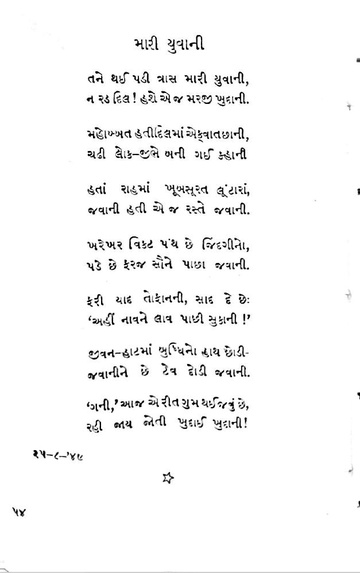 મારી યુવાની
તને થઈ પડી ત્રાસ મારી યુવાની,
ન રડ દિલ ! હશે એ જ મરજી ખુદાની.
મહોબ્બત હતી દિલમાં એક વાત છાની,
ચઢી લોક-જીભે બની ગઈ કહાની
હતાં રાહમાં ખૂબસૂરત લૂંટારાં,
જવાની હતી એ જ રસ્તે જવાની.
ખરેખર વિકટ પંથ છે જિંદગીનો,
પડે છે ફરજ સૌને પાછા જવાની.
ફરી યાદ તોફાનની, સાદ દે છેઃ
‘અહીં નાવને લાવ પાછી સુકાની !’
જીવન-હાટમાં બુધ્ધિનો હાથ છોડી-
જવાનીને છે ટેવ દોડી જવાની.
‘ગની,’ આજ એ રીત ગુમ થઈ જવું છે,
રહી જાય જોતી ખુદાઈ ખુદાની!
૨૫-૮-’૪૯
૫૪